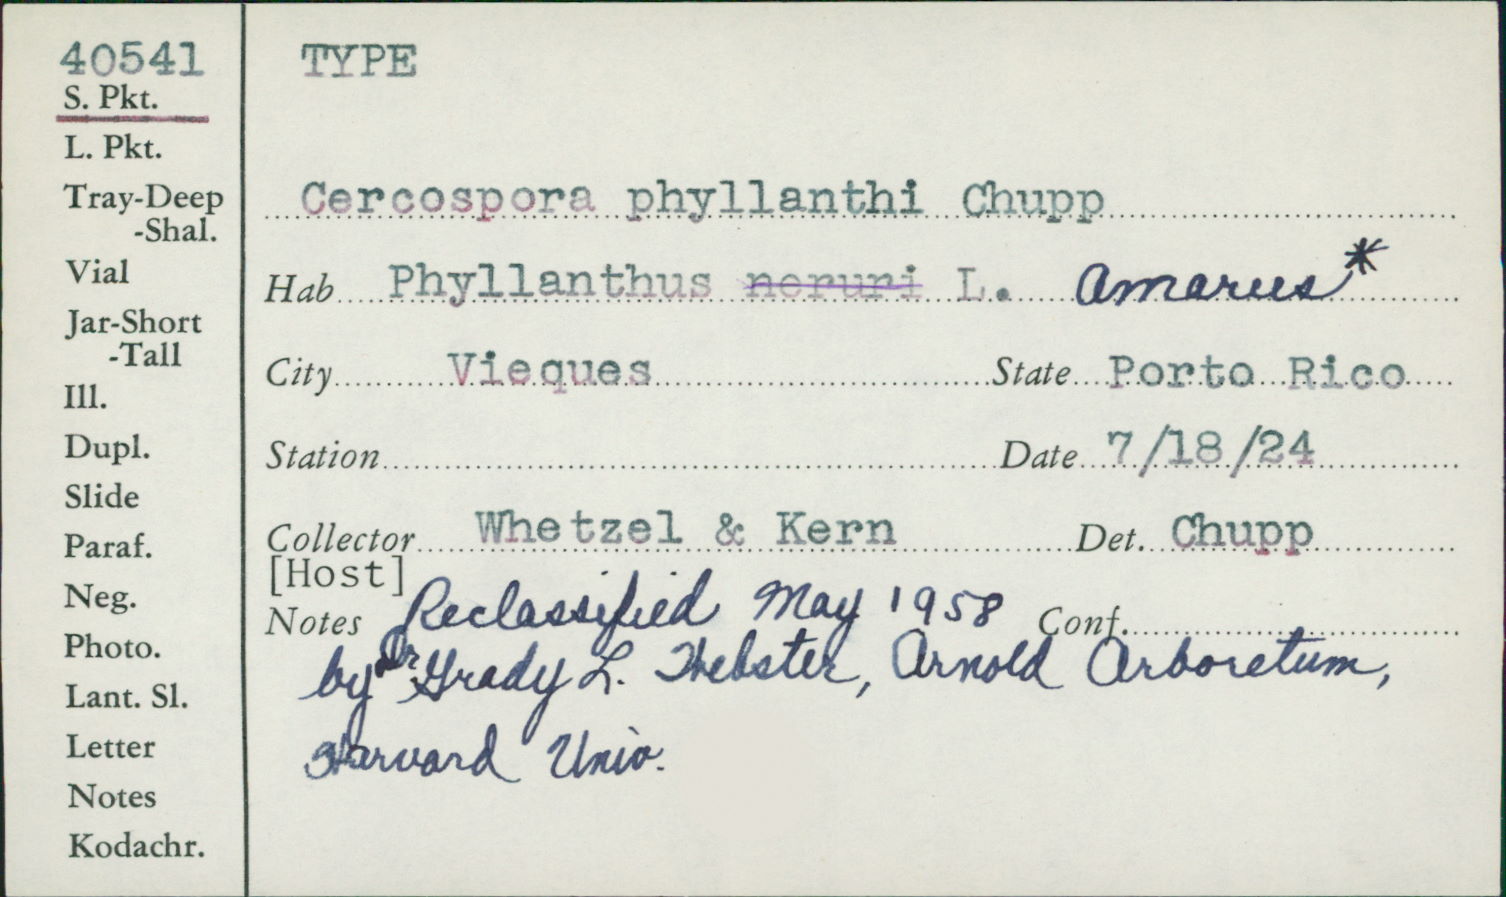 40541
S. Pkt.
L. Pkt.
Tray-Deep
-Shal.
Vial
Jar-Short
-Tall
Ill.
Dupl.
Slide
Paraf.
Neg.
Photo.
Lant. Sl.
Letter
Notes
Kodachr.
TYPE
Cercospora phyllanthi Chupp
Hab Phyllanthus neruri L. amarus*
City Vieques State Porto Rico
Station Date 7/18/24
Collector Whetzel & Kern Det. Chupp
[Host]
Notes Reclassified May 1958 Conf.
by Dr Grady L. Webster, Arnold Arboretum,
Harvard Univ.